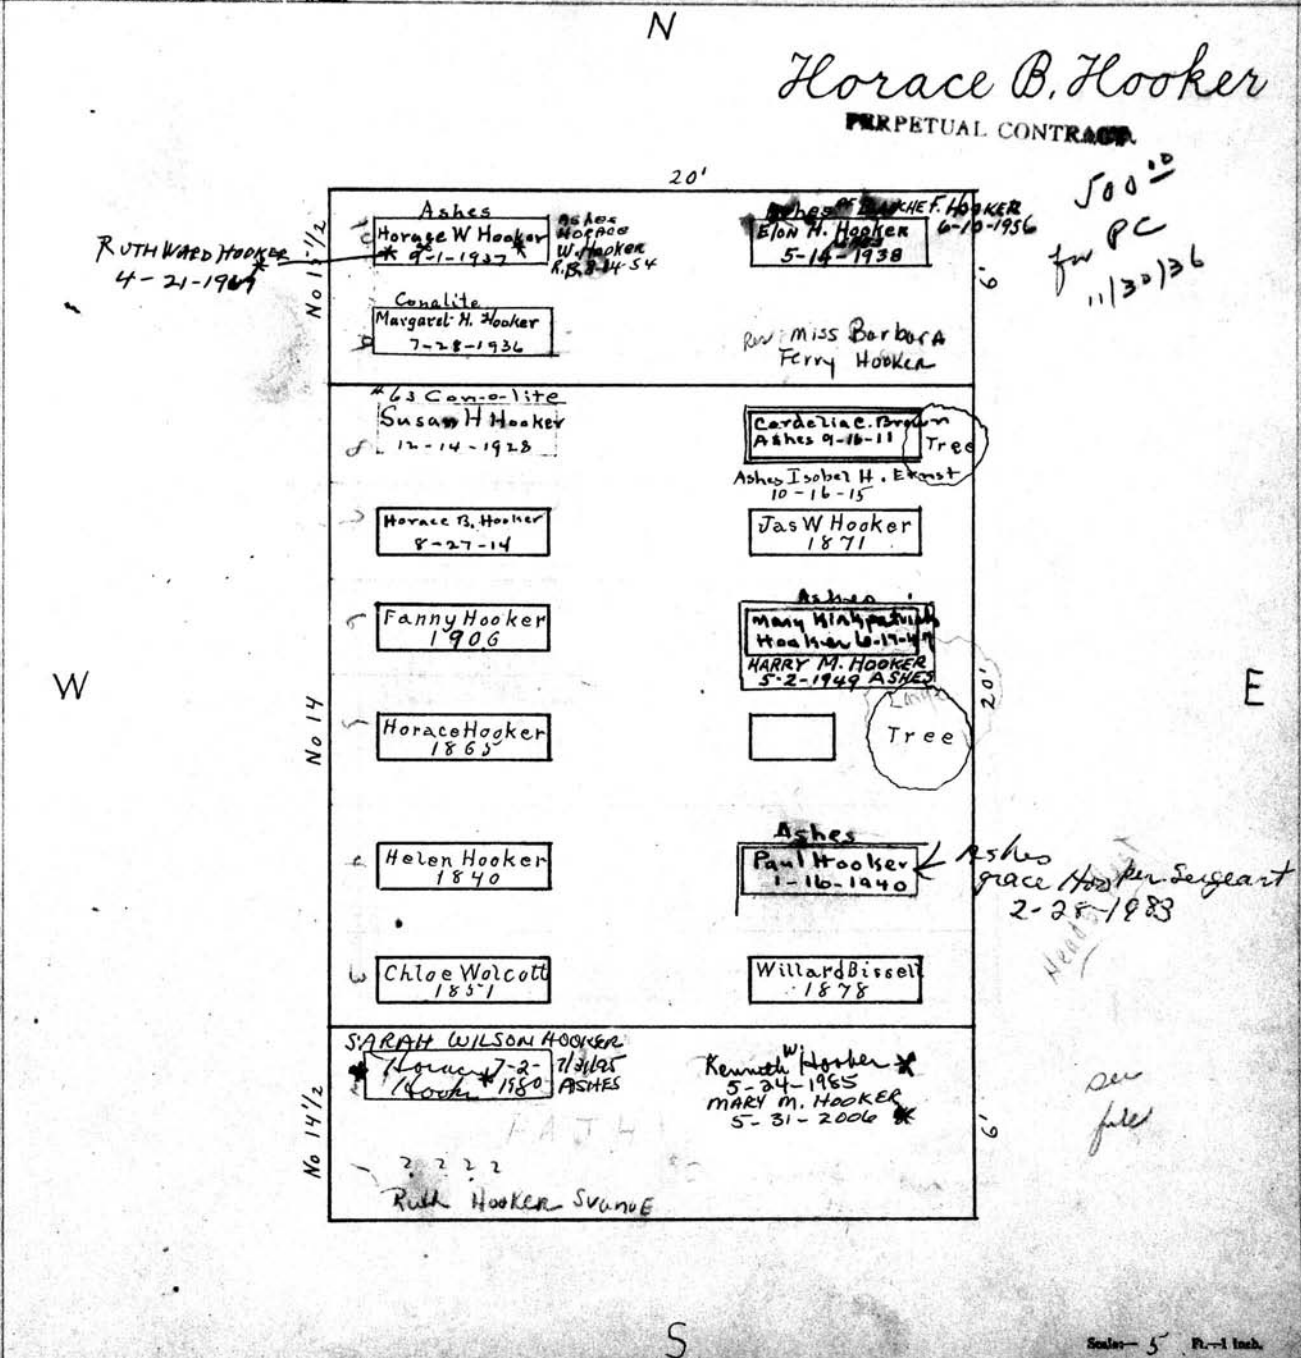 N
Horace B. Hooker
PERPETUAL CONTRACT
500 00
for PC
11/30/36
20'
Ashes
Horace W Hooker
9-1-1937
Ashes
Horace
W. Hooker
R.B. 8-14-54
Ashes OF BLANCHE F. HOOKER
6-10-1956
Elon H. Hooker
5-14-1938
RUTH WARD HOOKER
4-21-1969
No 13 1/2
6'
Conalite
Margaret H. Hooker
7-28-1936
Res. Miss Barbara
Ferry Hooker
#63 Con-o-lite
Susan H Hooker
12-14-1928
8
Cordelia C. Brown
Ashes 9-16-11
Tree
Ashes Isobel H. Ernst
10-16-15
7
Horace B. Hooker
8-27-14
Jas W Hooker
1871
6
Fanny Hooker
1906
Ashes
Mary Kirkpatrick
Hooker 6-17-47
HARRY M. HOOKER
5-2-1949 ASHES
W
E
No 14
20'
5
Horace Hooker
1865
Large
Tree
4
Helen Hooker
1840
Ashes
Paul Hooker
1-16-1940
Ashes
Grace Hooker Sergeant
2-28-1983
3
Chloe Wolcott
1851
Willard Bissell
1878
SARAH WILSON HOOKER
7/31/95
ASHES
Horace
Hooker
7-2-
1980
Kenneth W. Hooker
5-24-1985
MARY M. HOOKER
5-31-2006
see
file
No 14 1/2
6'
PATH
? ? ? ?
Ruth Hooker
S
Scale:— 5 Ft.—1 inch.